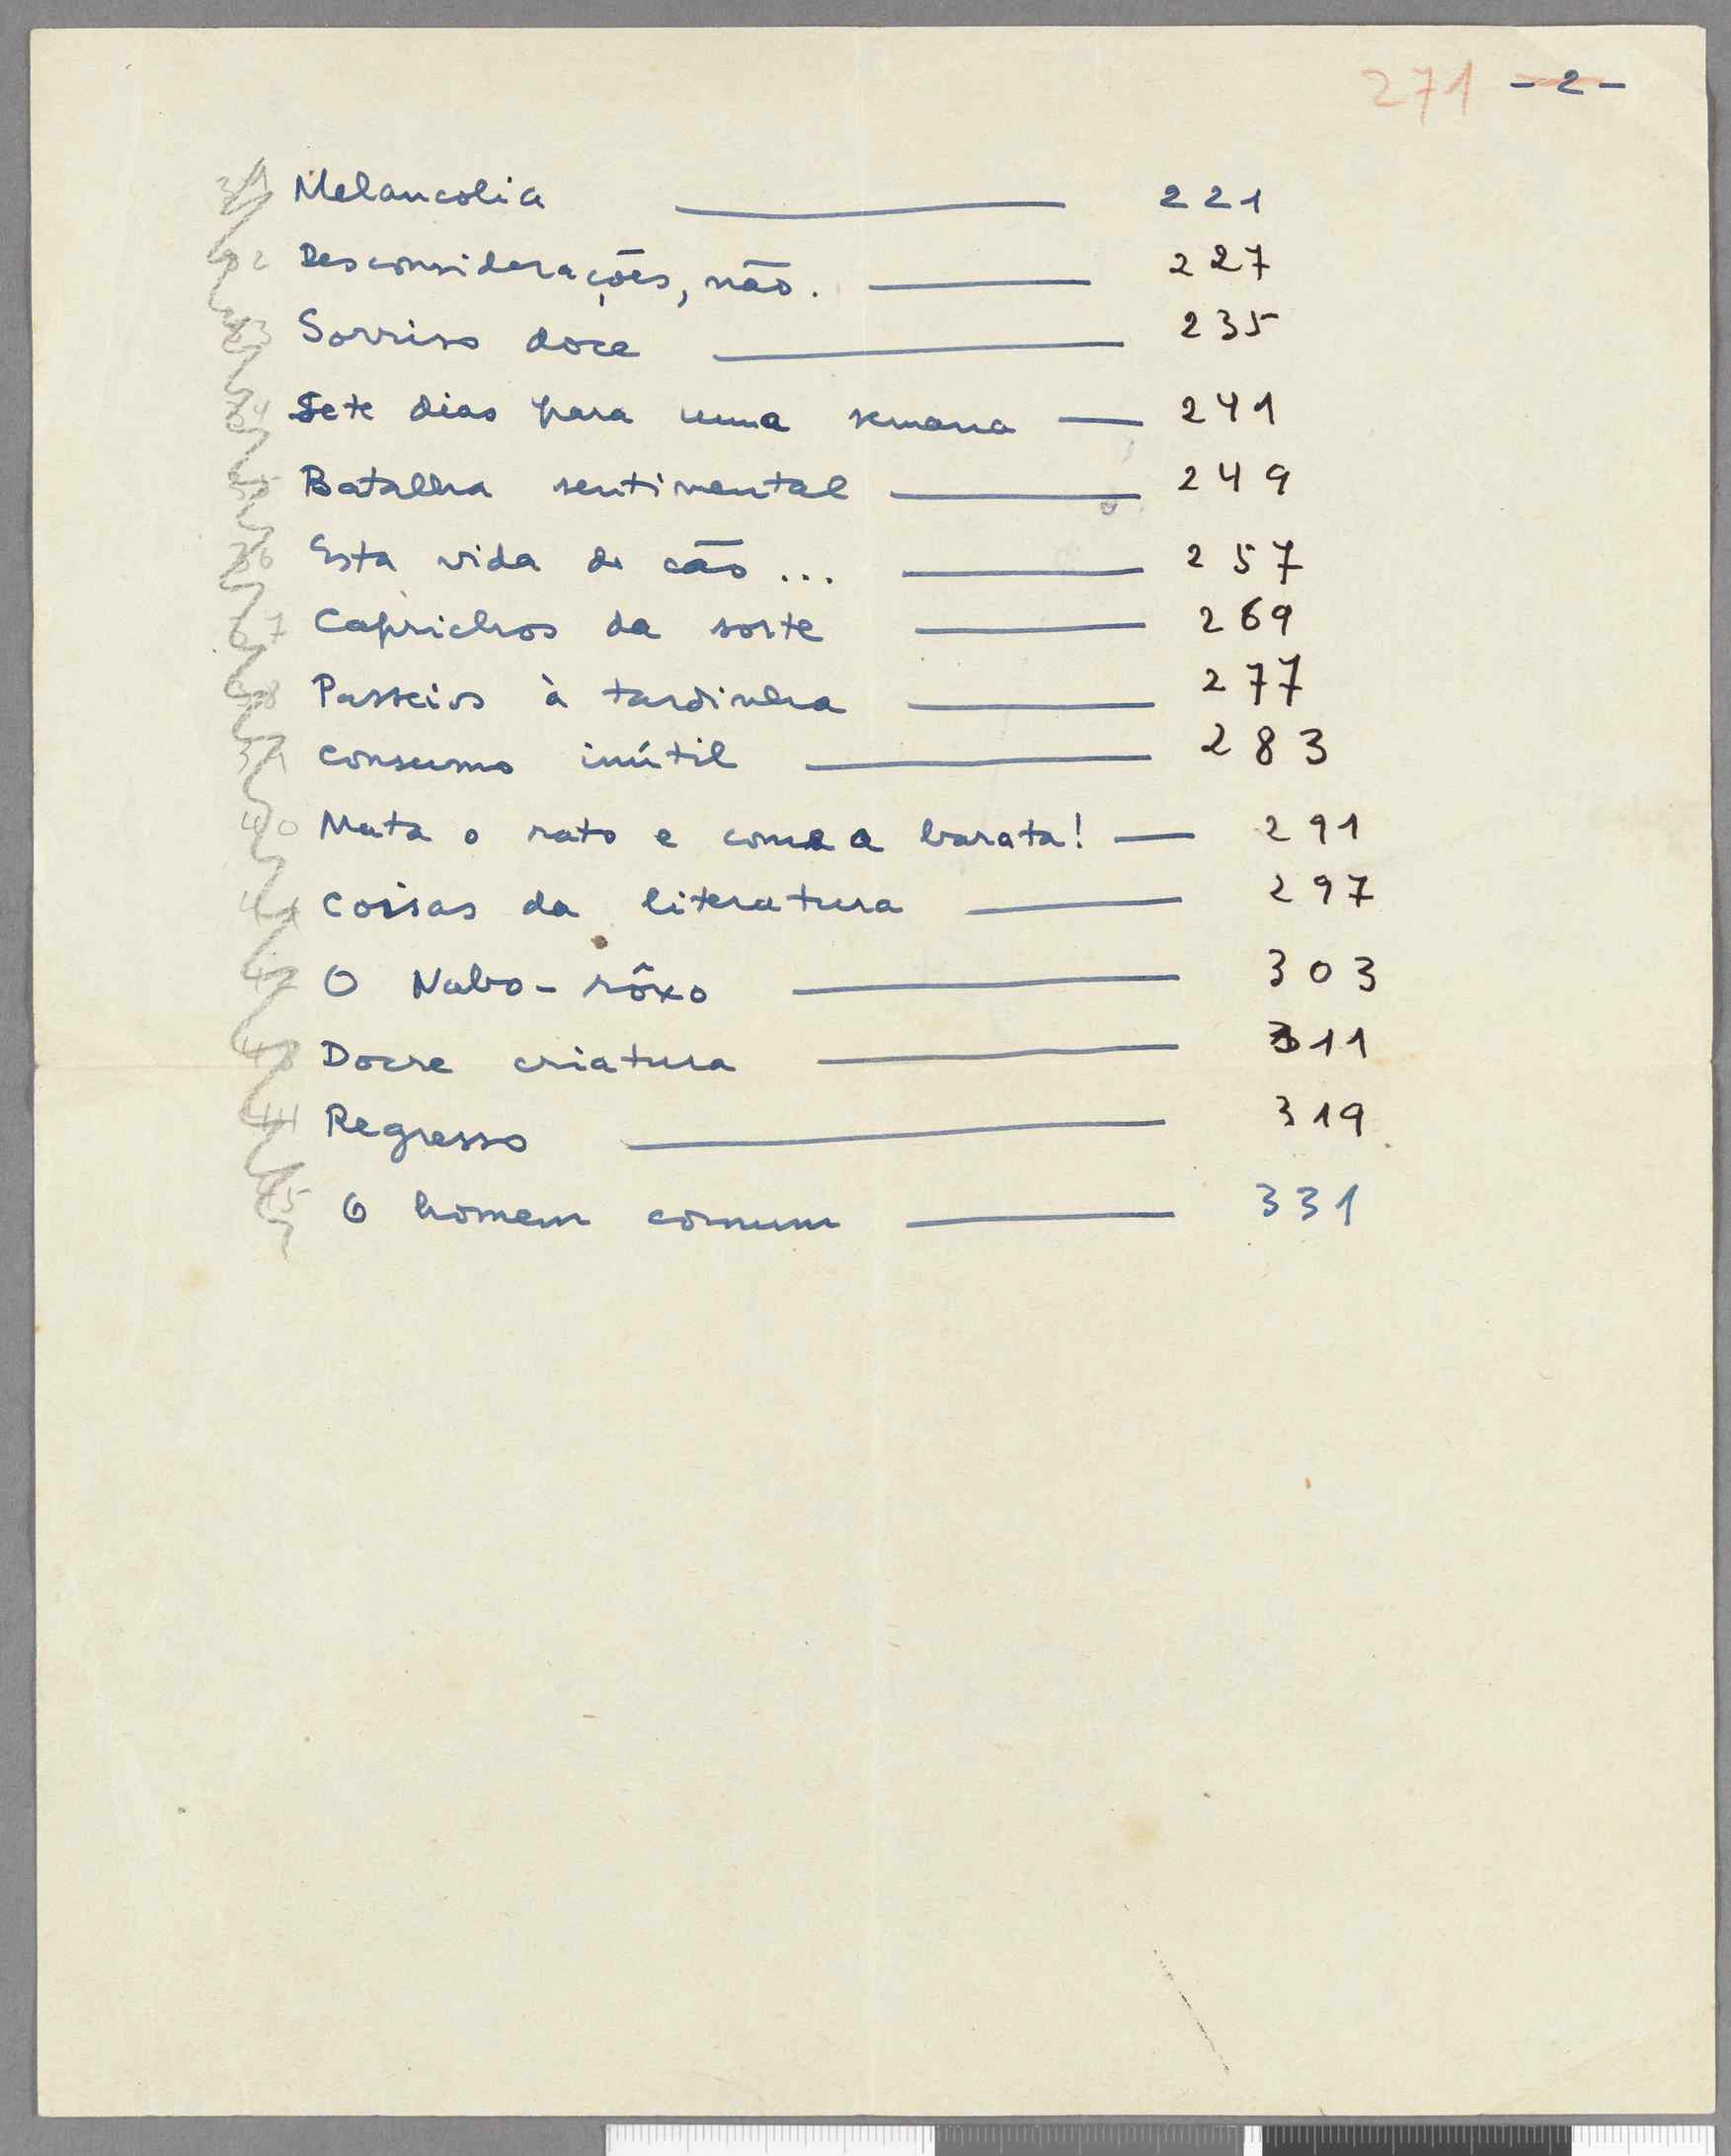 271 - 2 -
31 Melancolia 221
32 Desconsiderações, não. 227
33 Sorriso doce 235
34 Sete dias para uma semana 241
35 Batalha sentimental 249
36 Esta vida de cão... 257
37 Caprichos da sorte 269
38 Passeios à tardinha 277
39 Consumo inútil 283
40 Mata o rato e come a barata! 291
41 Coisas da literatura 297
42 O Nabo-rôxo 303
43 Docre criatura 311
44 Regresso 319
45 O homem comum 331